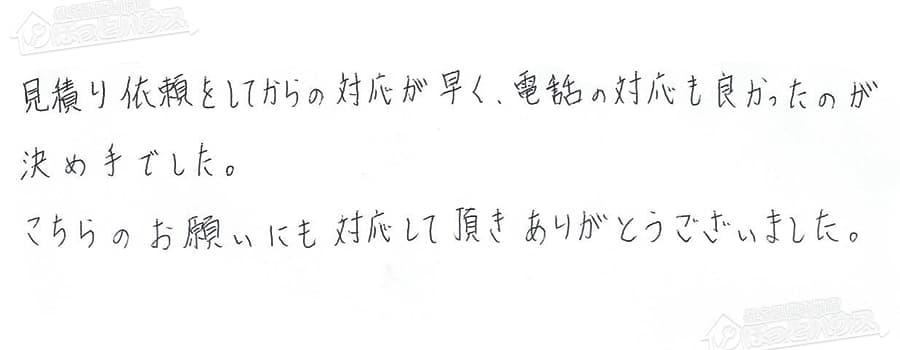 見積り依頼をしてからの対応が早く、電話の対応も良かったのが
決め手でした。
こちらのお願いにも対応して頂きありがとうございました。
ほっとハウス
ほっとハウス